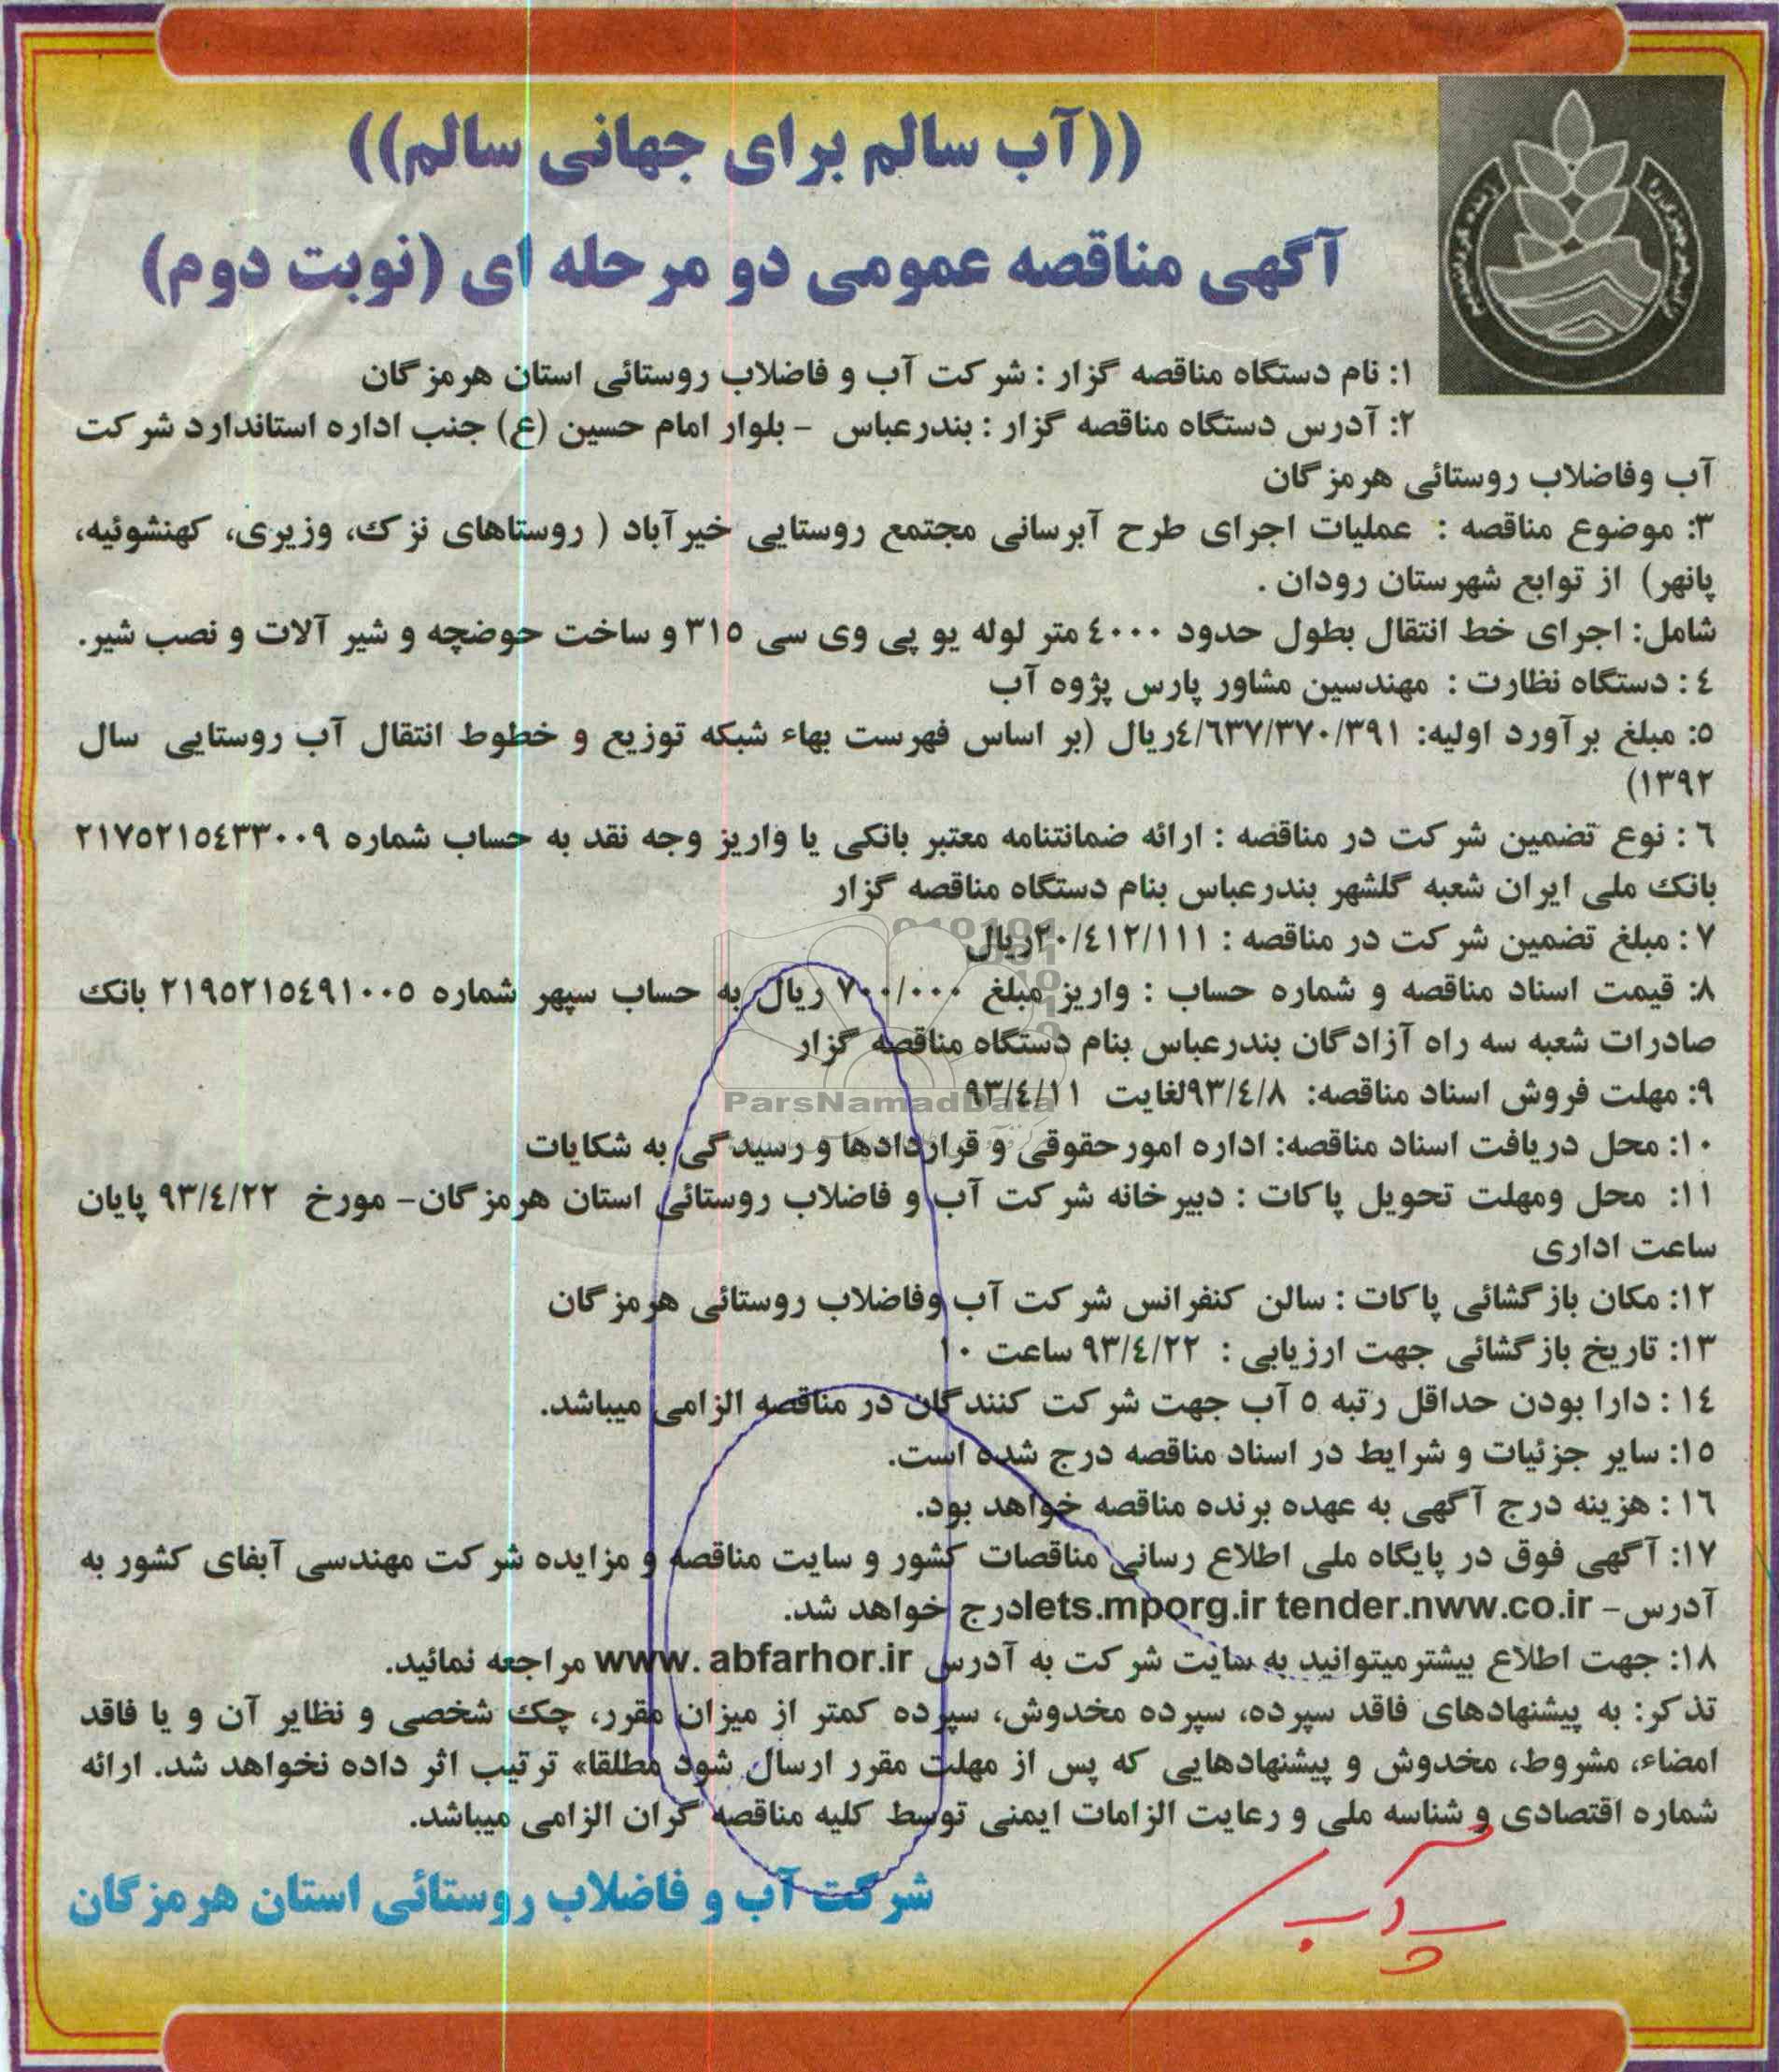 ((آب سالم برای جهانی سالم))
آگهی مناقصه عمومی دو مرحله ای (نوبت دوم)
۱: نام دستگاه مناقصه گزار : شرکت آب و فاضلاب روستائی استان هرمزگان
۲: آدرس دستگاه مناقصه گزار : بندرعباس - بلوار امام حسین (ع) جنب اداره استاندارد شرکت
آب وفاضلاب روستائی هرمزگان
۳: موضوع مناقصه : عملیات اجرای طرح آبرسانی مجتمع روستایی خیرآباد ( روستاهای نزک، وزیری، کهنشوئیه،
پانهر) از توابع شهرستان رودان .
شامل: اجرای خط انتقال بطول حدود ٤۰۰۰ متر لوله یو پی وی سی ۳۱۵ و ساخت حوضچه و شیر آلات و نصب شیر.
٤ : دستگاه نظارت : مهندسین مشاور پارس پژوه آب
۵: مبلغ برآورد اولیه: ٤/٦۳۷/۳۷۰/۳۹۱ریال (بر اساس فهرست بهاء شبکه توزیع و خطوط انتقال آب روستایی سال
۱۳۹۲)
٦ : نوع تضمین شرکت در مناقصه : ارائه ضمانتنامه معتبر بانکی یا واریز وجه نقد به حساب شماره ۲۱۷۵۲۱۵٤۳۳۰۰۹
بانک ملی ایران شعبه گلشهر بندرعباس بنام دستگاه مناقصه گزار
۷ : مبلغ تضمین شرکت در مناقصه : ۲۰/٤۱۲/۱۱۱ریال
۸: قیمت اسناد مناقصه و شماره حساب : واریز مبلغ ۷۰۰/۰۰۰ ریال به حساب سپهر شماره ۲۱۹۵۲۱۵٤۹۱۰۰۵ بانک
صادرات شعبه سه راه آزادگان بندرعباس بنام دستگاه مناقصه گزار
۹: مهلت فروش اسناد مناقصه: ۹۳/٤/۸لغایت ۹۳/٤/۱۱
ParsNamadData
۱۰: محل دریافت اسناد مناقصه: اداره امورحقوقی و قراردادها و رسیدگی به شکایات
۱۱: محل ومهلت تحویل پاکات : دبیرخانه شرکت آب و فاضلاب روستائی استان هرمزگان- مورخ ۹۳/٤/۲۲ پایان
ساعت اداری
۱۲: مکان بازگشائی پاکات : سالن کنفرانس شرکت آب وفاضلاب روستائی هرمزگان
۱۳: تاریخ بازگشائی جهت ارزیابی : ۹۳/٤/۲۲ ساعت ۱۰
۱٤ : دارا بودن حداقل رتبه ۵ آب جهت شرکت کنندگان در مناقصه الزامی میباشد.
۱۵: سایر جزئیات و شرایط در اسناد مناقصه درج شده است.
۱٦ : هزینه درج آگهی به عهده برنده مناقصه خواهد بود.
۱۷: آگهی فوق در پایگاه ملی اطلاع رسانی مناقصات کشور و سایت مناقصه و مزایده شرکت مهندسی آبفای کشور به
آدرس- lets.mporg.ir tender.nww.co.irدرج خواهد شد.
۱۸: جهت اطلاع بیشترمیتوانید به سایت شرکت به آدرس www. abfarhor.ir مراجعه نمائید.
تذکر: به پیشنهادهای فاقد سپرده، سپرده مخدوش، سپرده کمتر از میزان مقرر، چک شخصی و نظایر آن و یا فاقد
امضاء، مشروط، مخدوش و پیشنهادهایی که پس از مهلت مقرر ارسال شود مطلقا» ترتیب اثر داده نخواهد شد. ارائه
شماره اقتصادی و شناسه ملی و رعایت الزامات ایمنی توسط کلیه مناقصه گران الزامی میباشد.
شرکت آب و فاضلاب روستائی استان هرمزگان